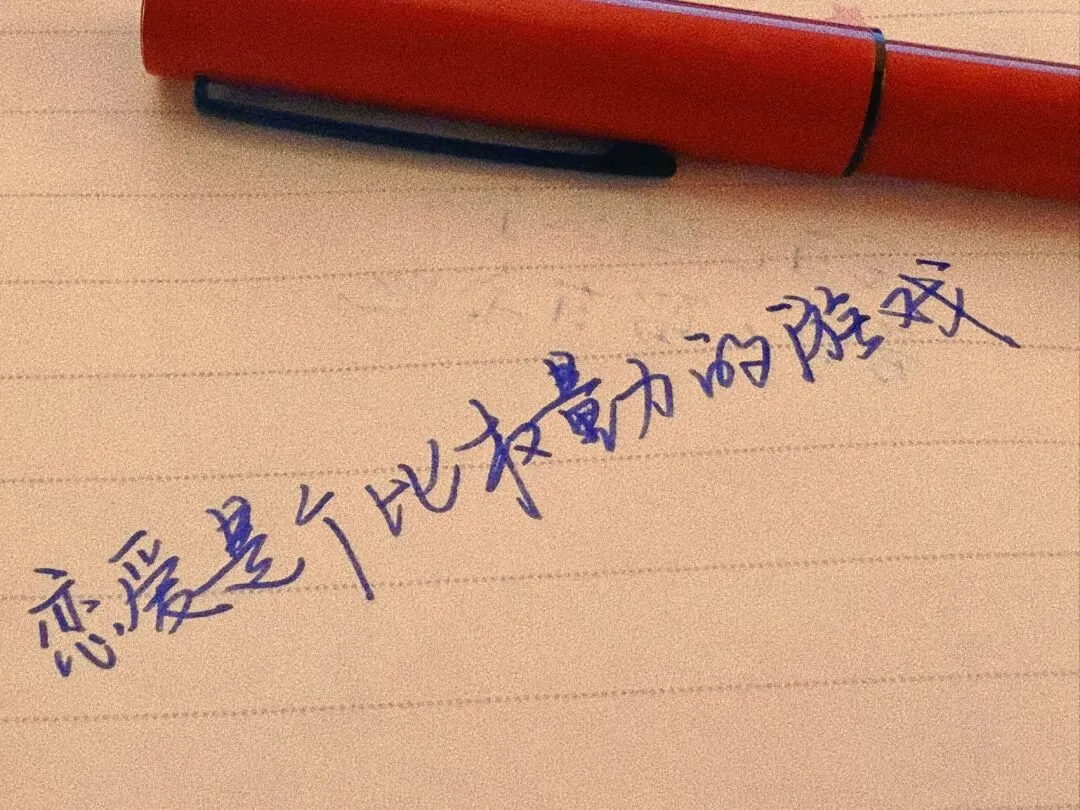 恋爱是个比权量力的游戏